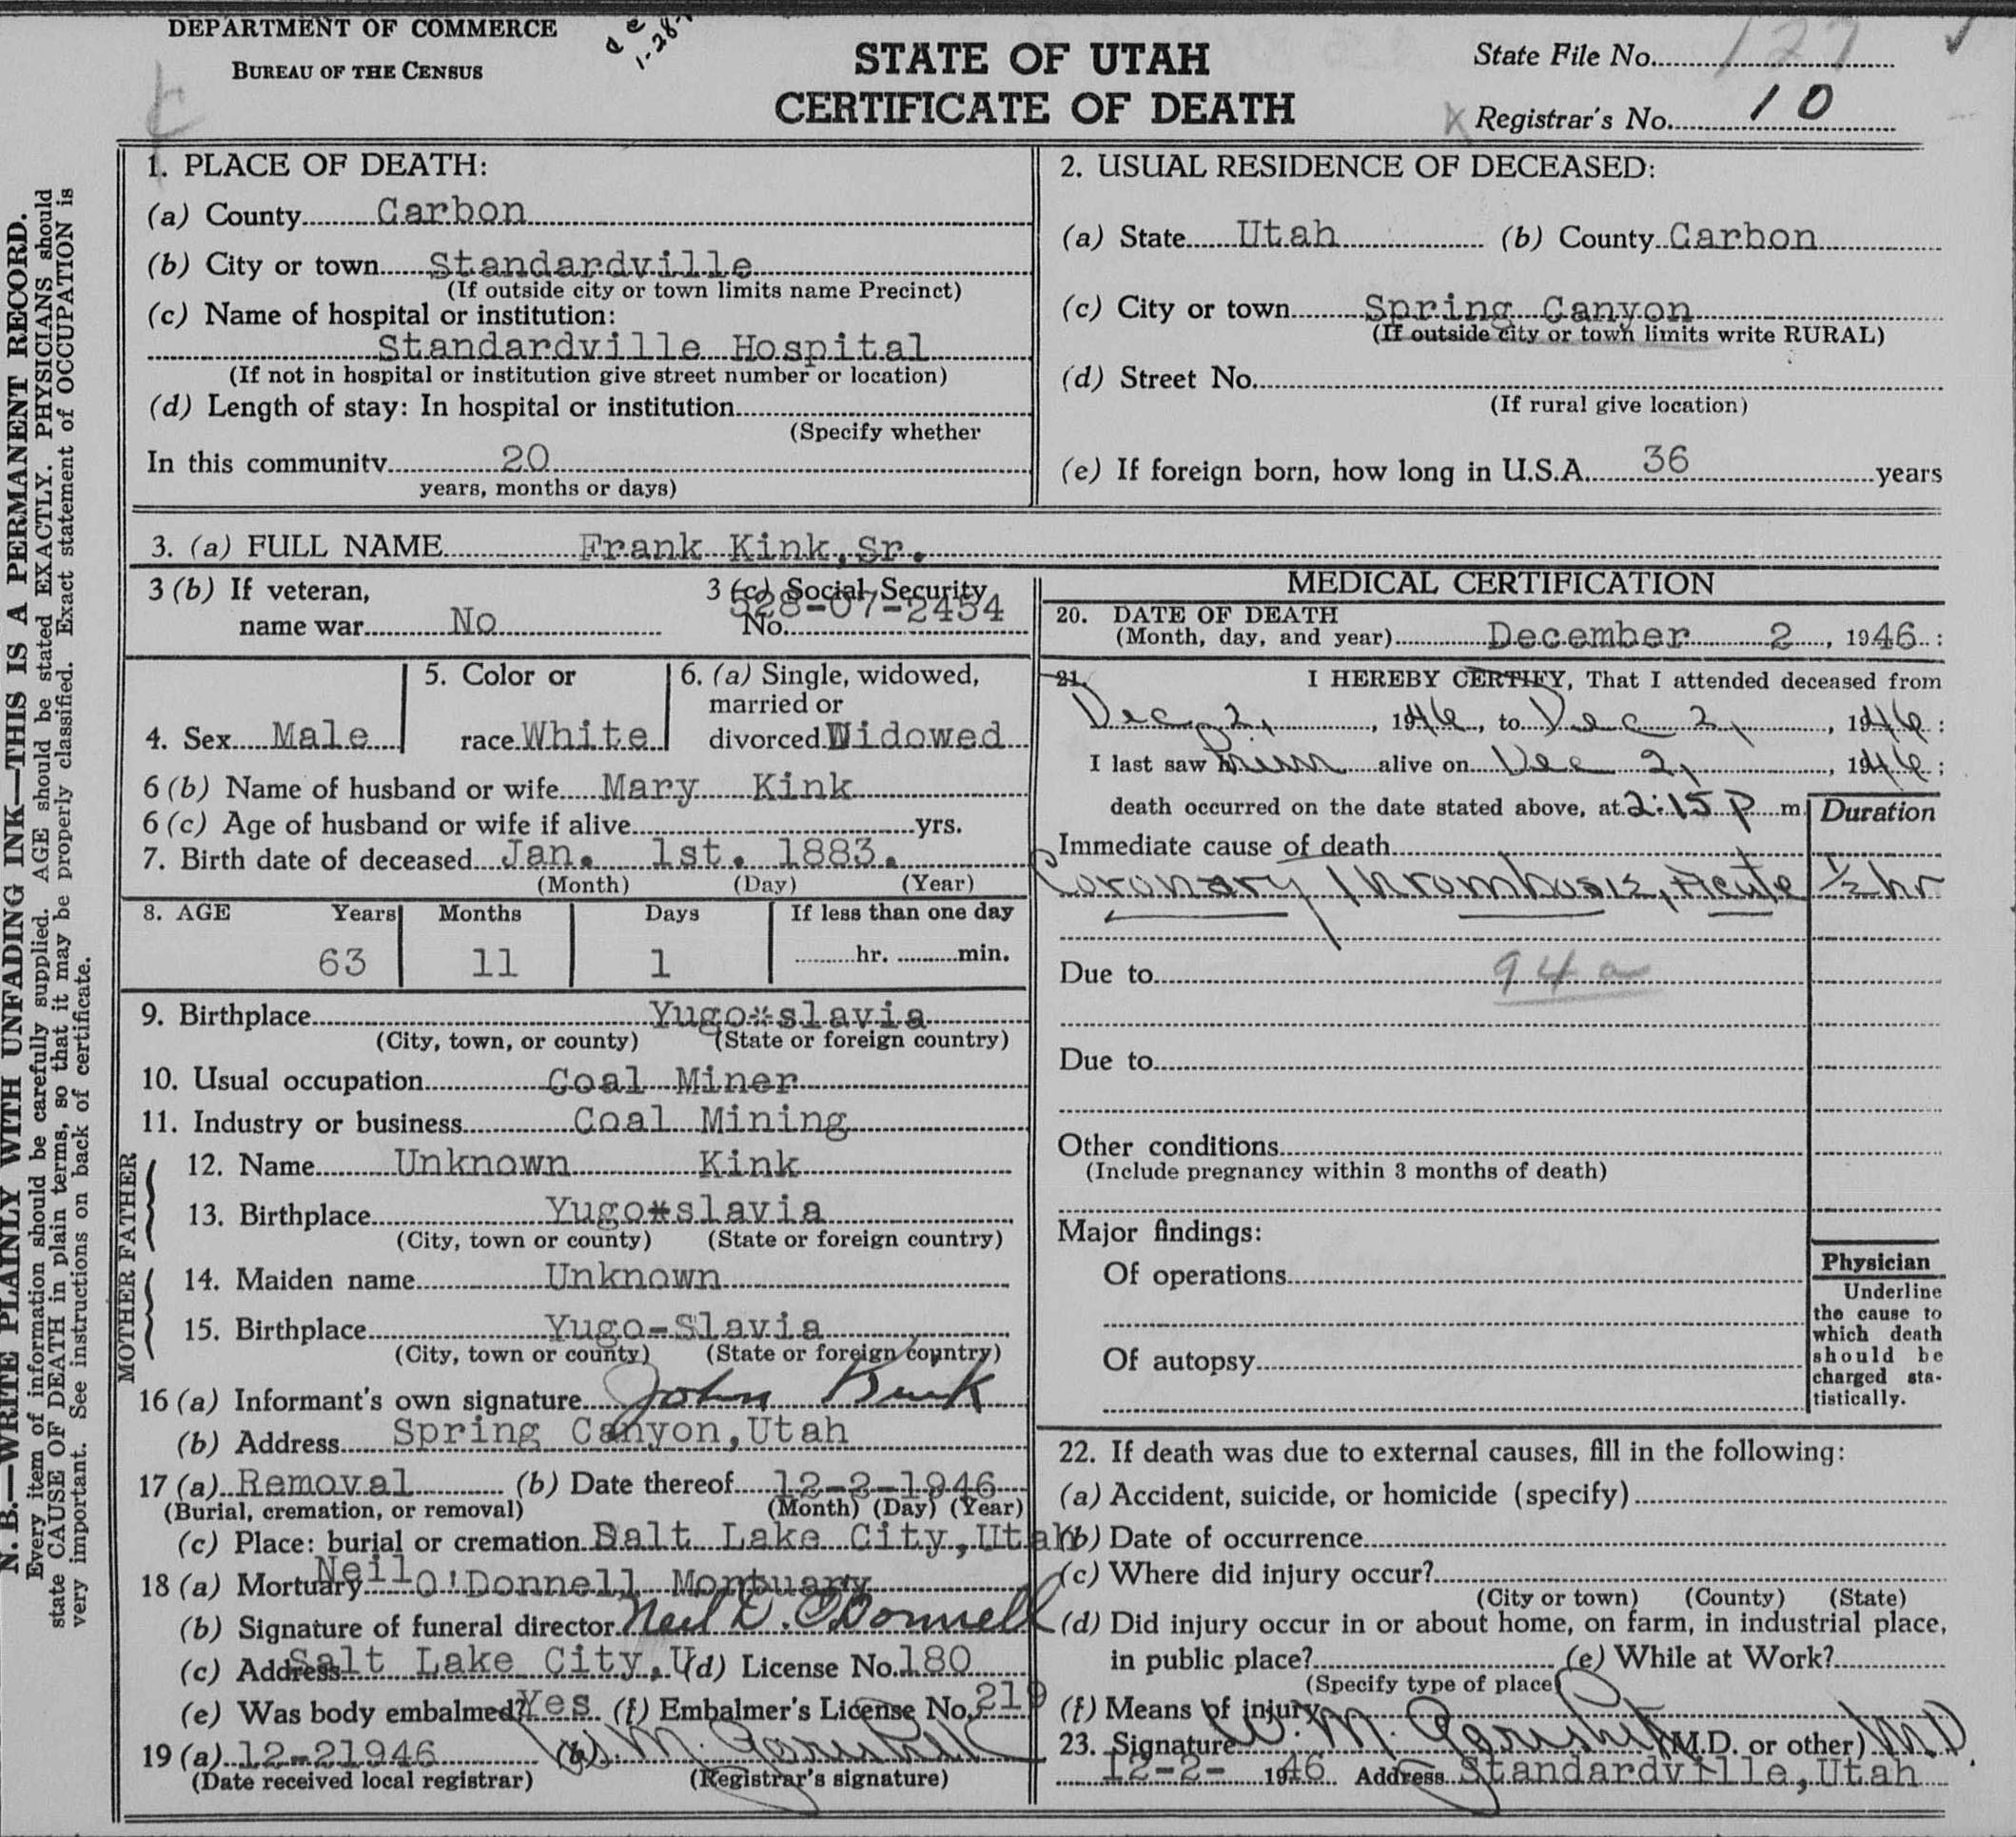 DEPARTMENT OF COMMERCE
BUREAU OF THE CENSUS
STATE OF UTAH
CERTIFICATE OF DEATH
State File No. 127
Registrar's No. 10
N. B.—WRITE PLAINLY WITH UNFADING INK—THIS IS A PERMANENT RECORD.
Every item of information should be carefully supplied. AGE should be stated EXACTLY. PHYSICIANS should
state CAUSE OF DEATH in plain terms, so that it may be properly classified. Exact statement of OCCUPATION is
very important. See instructions on back of certificate.
1. PLACE OF DEATH:
(a) County Carbon
(b) City or town Standardville
(If outside city or town limits name Precinct)
(c) Name of hospital or institution:
Standardville Hospital
(If not in hospital or institution give street number or location)
(d) Length of stay: In hospital or institution
(Specify whether
In this community 20
years, months or days)
2. USUAL RESIDENCE OF DECEASED:
(a) State Utah (b) County Carbon
(c) City or town Spring Canyon
(If outside city or town limits write RURAL)
(d) Street No.
(If rural give location)
(e) If foreign born, how long in U.S.A. 36 years
3. (a) FULL NAME Frank Kink, Sr.
3 (b) If veteran, 3 (c) Social Security
name war No No. 528-07-2454
4. Sex Male
5. Color or
race White
6. (a) Single, widowed,
married or
divorced Widowed
6 (b) Name of husband or wife Mary Kink
6 (c) Age of husband or wife if alive yrs.
7. Birth date of deceased Jan. 1st. 1883.
(Month) (Day) (Year)
8. AGE Years Months Days If less than one day
63 11 1 hr. min.
9. Birthplace Yugo*slavia
(City, town, or county) (State or foreign country)
10. Usual occupation Coal Miner
11. Industry or business Coal Mining
FATHER
12. Name Unknown Kink
13. Birthplace Yugo*slavia
(City, town or county) (State or foreign country)
MOTHER
14. Maiden name Unknown
15. Birthplace Yugo-Slavia
(City, town or county) (State or foreign country)
16 (a) Informant's own signature John Kink
(b) Address Spring Canyon, Utah
17 (a) Removal (b) Date thereof 12-2-1946
(Burial, cremation, or removal) (Month) (Day) (Year)
(c) Place: burial or cremation Salt Lake City, Utah
18 (a) Mortuary Neil O'Donnell Mortuary
(b) Signature of funeral director Neil D. O'Donnell
(c) Address Salt Lake City, U (d) License No. 180
(e) Was body embalmed? Yes (f) Embalmer's License No. 219
19 (a) 12-21946 (b)
(Date received local registrar) (Registrar's signature)
MEDICAL CERTIFICATION
20. DATE OF DEATH
(Month, day, and year) December 2, 1946:
21. I HEREBY CERTIFY, That I attended deceased from
Dec 2, 1946, to Dec 2, 1946:
I last saw him alive on Dec 2, 1946;
death occurred on the date stated above, at 2:15 P m. Duration
Immediate cause of death
Coronary Thrombosis, Acute ½ hr
Due to 94a
Due to
Other conditions
(Include pregnancy within 3 months of death)
Major findings:
Of operations
Of autopsy
Physician
Underline
the cause to
which death
should be
charged sta-
tistically.
22. If death was due to external causes, fill in the following:
(a) Accident, suicide, or homicide (specify)
(b) Date of occurrence
(c) Where did injury occur?
(City or town) (County) (State)
(d) Did injury occur in or about home, on farm, in industrial place,
in public place? (e) While at Work?
(Specify type of place)
(f) Means of injury
23. Signature W. M. (M.D. or other) MD.
12-2- 1946 Address Standardville, Utah